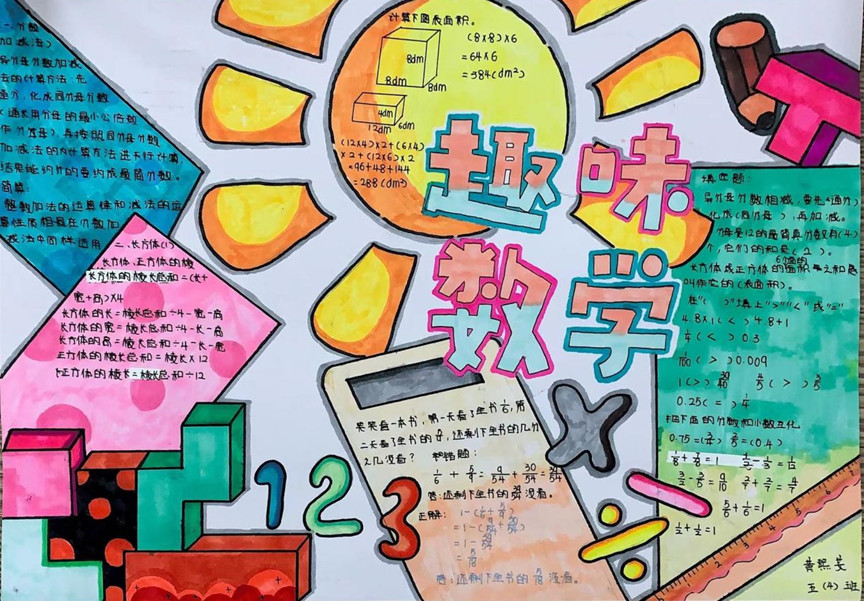 一、分数
加减法)
异分母分数加减
法的计算方法:先
通分,化成同分母分数
(通常用分母的最小公倍数
作分母),再按照同分母分数
加减法的计算方法进行计算
结果能约分的要约成最简分数。
简算:
整数加法的运算律和减法的运
算性质相最在分数加
减法中同样适用
二、长方体(1)
长方体、正方体的棱
长方体的棱长总和=(长+
宽+高)×4
长方体的长=棱长总和÷4-宽-高
长方体的宽=棱长总和÷4-长-高
长方体的高=棱长总和÷4-长-宽
正方体的棱长总和=棱长×12
正方体的棱长=棱长总和÷12
计算下图表面积。
8dm
8dm
8dm
(8×8)×6
=64×6
=384(dm²)
4dm
12dm
6dm
(12×4)×2+(6×4)
×2+(12×6)×2
=96+48+144
=288(dm²)
趣味
数学
填空题:
异分母分数相减,要先(通分)
化成(同分母),再加减。
分母是12的最简真分数有(4)
个,它们的和是(2)。
长方体或正方体6个面的面积之和
叫作它的(表面积)。
在( )填上">""<"或"="
4.8×1(<)4.8+1
(<)0.3
(>)0.009
0.25(=)1/4
把下面的分数和小数互化
0.75=(3/4) 2/5=(0.4)
5/6+1/6=1
1/2+1/2=1
笑笑看一本书,第一天看了全书1/6,第
二天看了全书的5/9,还剩下全书的几分
之几没看?
错题:
1/6+5/9=9/54+30/54=39/54
答:还剩下全书的39/54没看。
正解:
1-(1/6+5/9)
=1-(9/54+30/54)
=1-39/54
=5/18
答:还剩下全书的5/18没看。
1 2 3
×
÷
1 2 3 4 5 6
黄熙芸
五(4)班